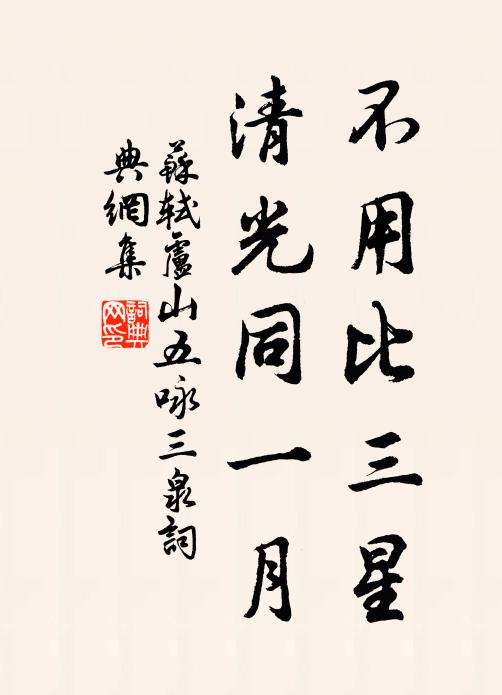 不用比三星
清光同一月
蘇軾盧山五咏三泉詞
典網集
詞典
网印